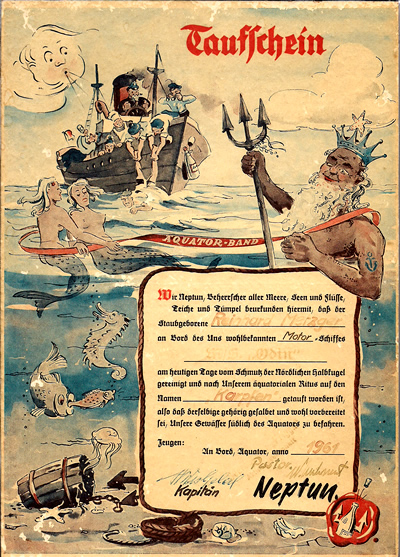 Taufschein
ÄQUATOR-BAND
Wir Neptun, Beherrscher aller Meere, Seen und Flüsse,
Teiche und Tümpel beurkunden hiermit, daß der
Staubgeborene
an Bord des Uns wohlbekannten Motor-Schiffes
am heutigen Tage vom Schmutz der Nördlichen Halbkugel
gereinigt und nach Unserem äquatorialen Ritus auf den
Namen Karpfen getauft worden ist,
also daß derselbige gehörig gesalbt und wohl vorbereitet
sei, Unsere Gewässer südlich des Äquators zu befahren.
Zeugen:
An Bord, Äquator, anno 1961
Pastor
Kapitän Neptun.